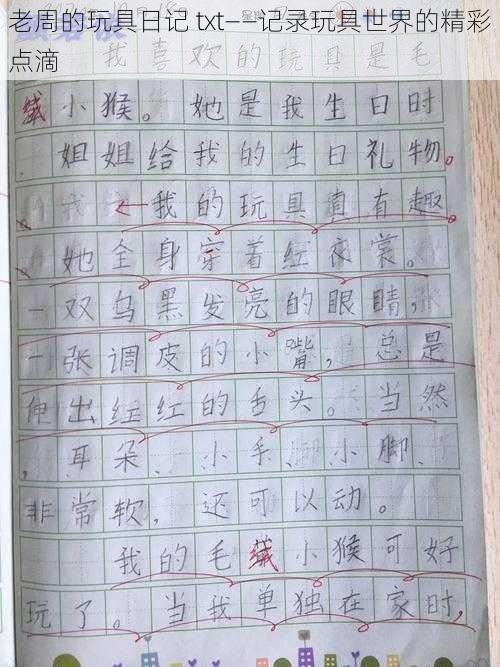 老周的玩具日记 txt——记录玩具世界的精彩
点滴
我喜欢的玩具是毛
绒小猴。她是我生日时
姐姐给我的生日礼物。
我的玩具真有趣
她全身穿着红衣裳。
一双乌黑发亮的眼睛,
一张调皮的小嘴,总是
伸出红红的舌头。当然
,耳朵、小手、小脚、
非常软,还可以动。
我的毛绒小猴可好
玩了。当我单独在家时,